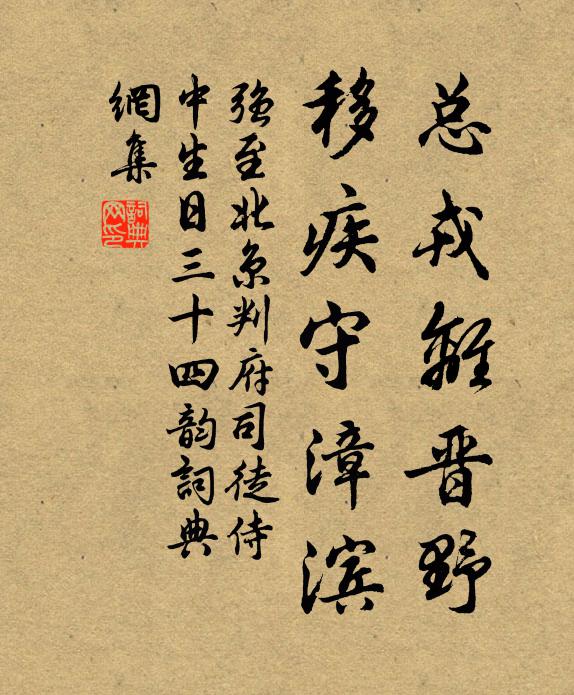 总戎離晋野
移疾守漳滨
强至北京判府司徒侍
中生日三十四韵詞典
網集
詞典
网印